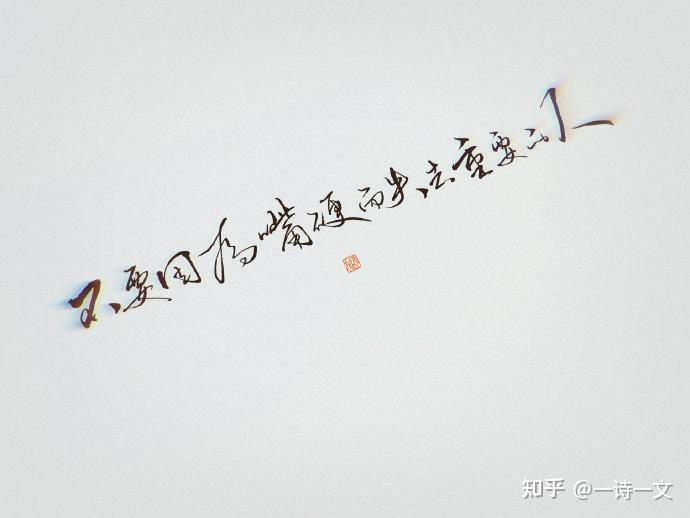 不要因为嘴硬而失去重要的人
知乎 @一诗一文